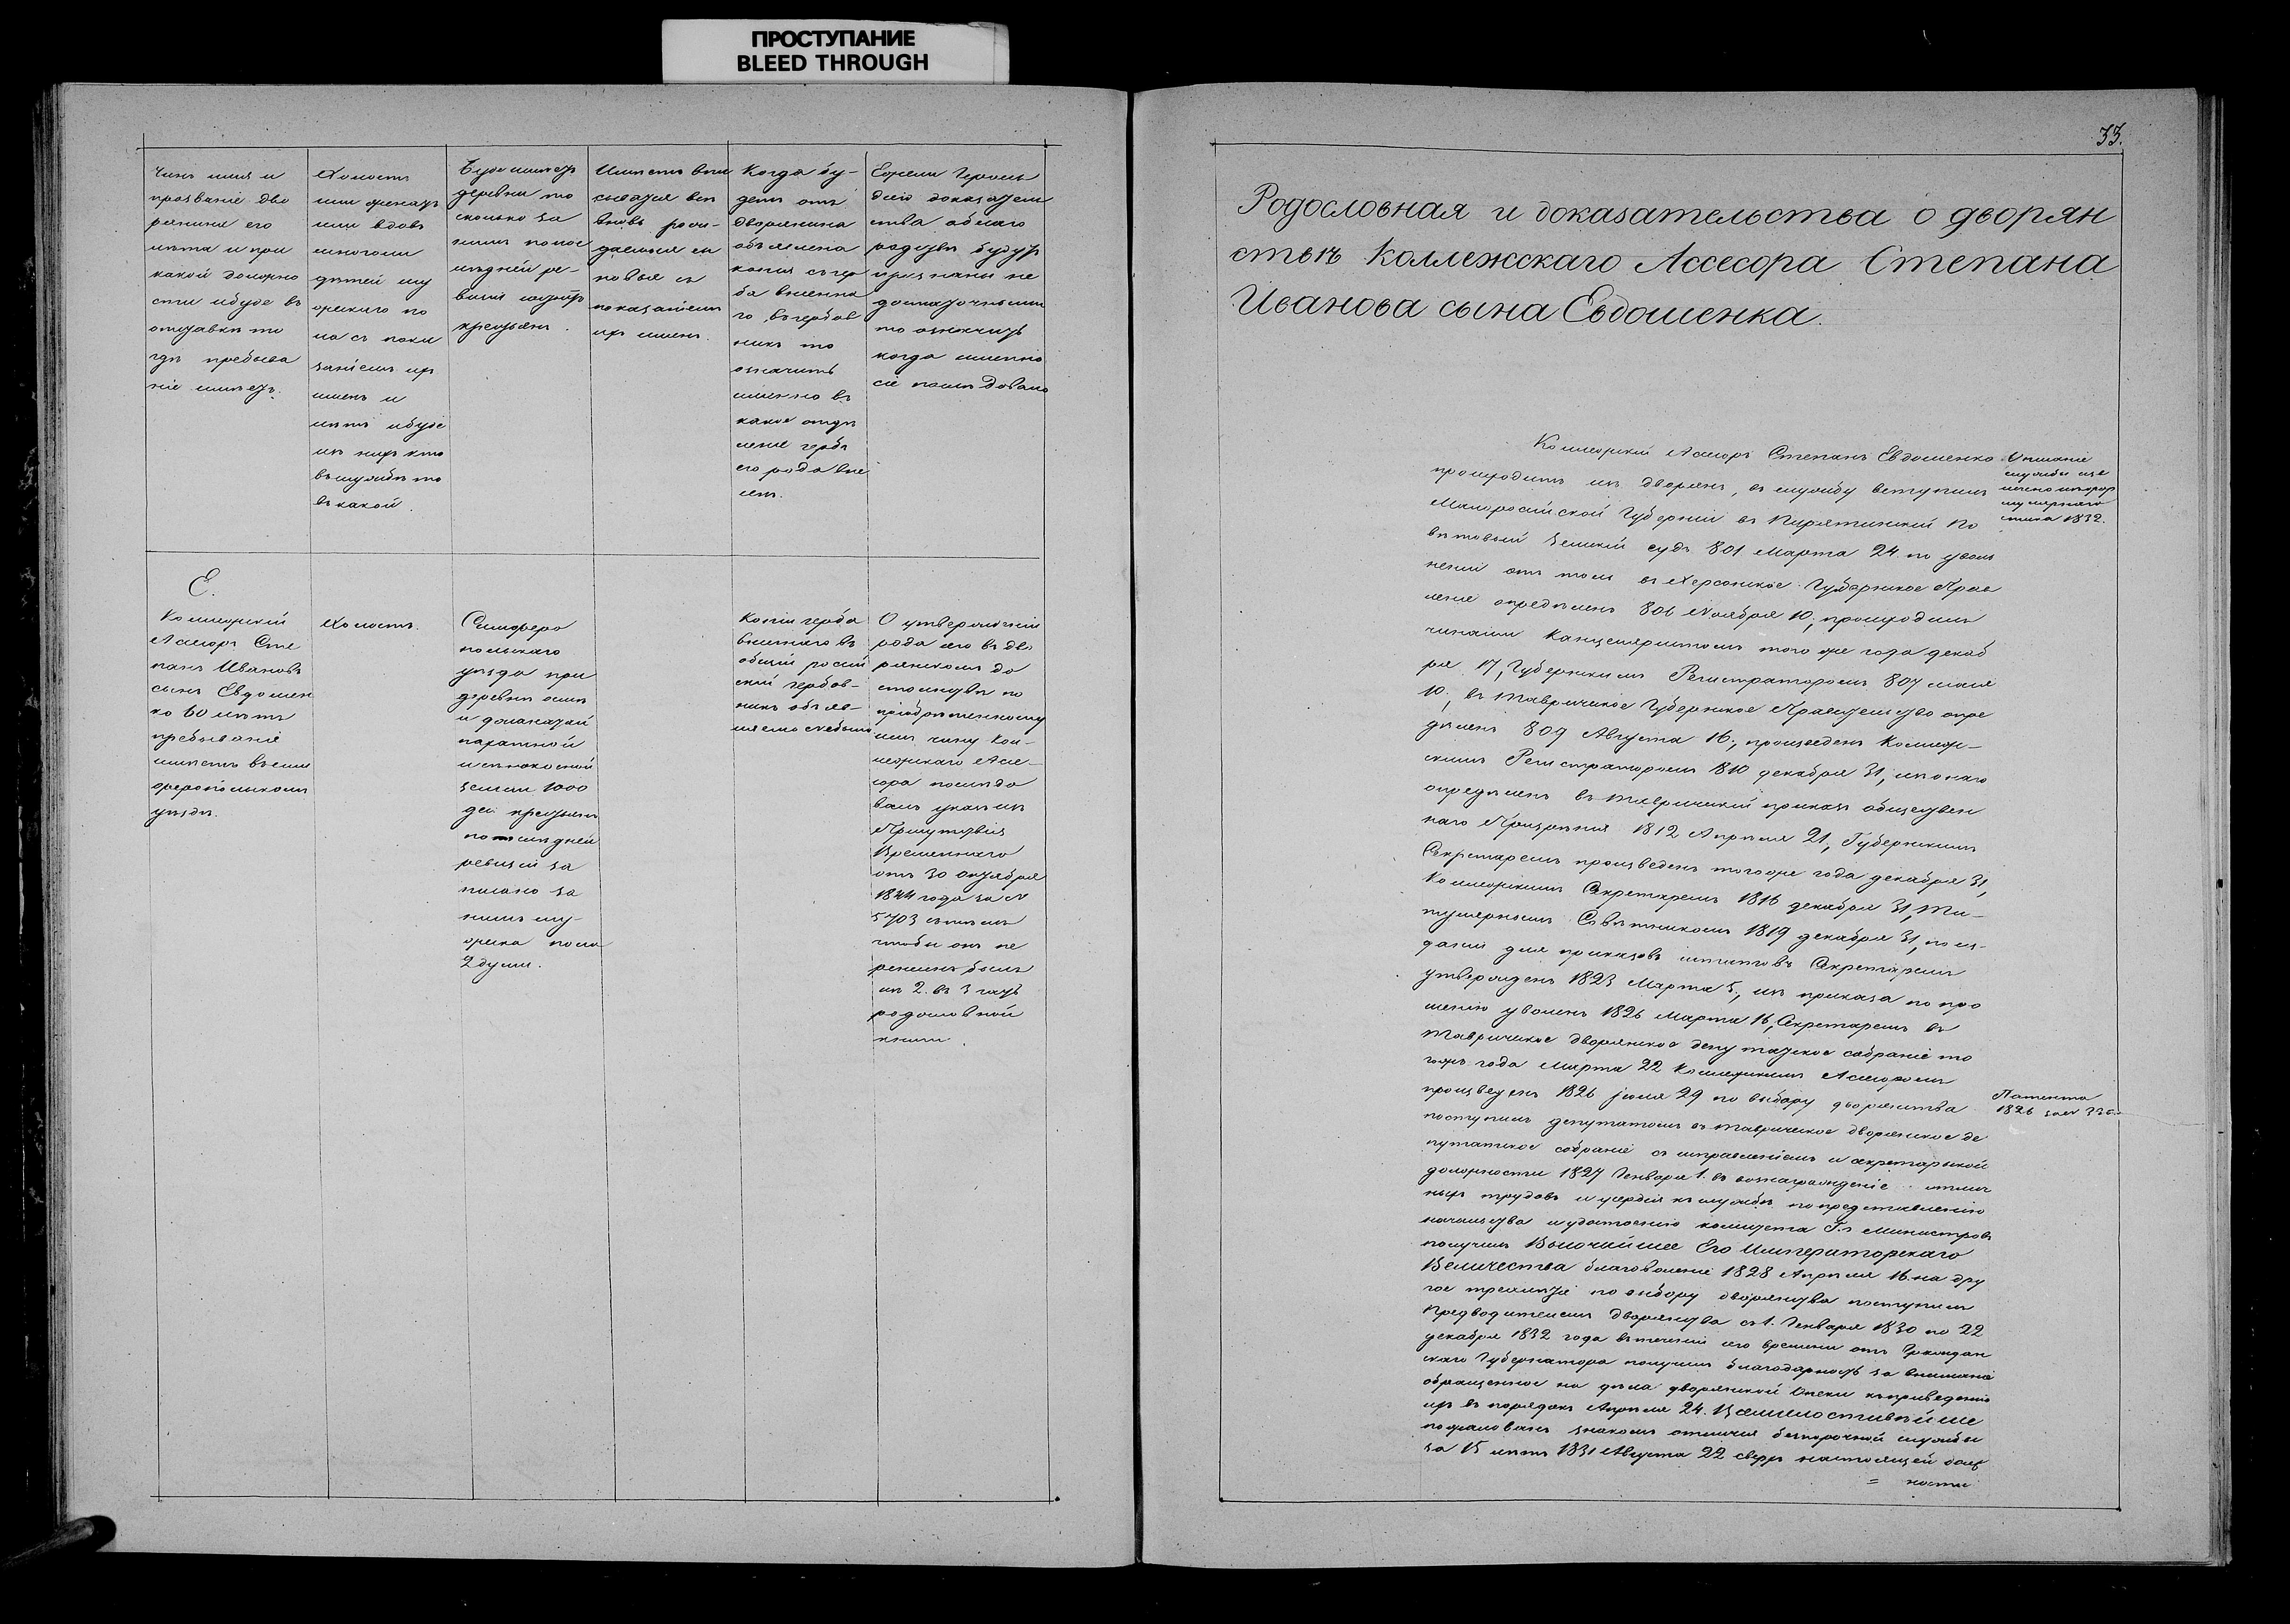 ПРОСТУПАНИЕ
BLEED THROUGH
Чинъ имя и
прозваніе дво
рянина его
лѣта и при
какой должно
сти ибуде въ
отставкѣ то
гдѣ пребыва
ніе имѣетъ.
Холостъ
или женатъ
или вдовъ
многоли
дѣтей му
жескаго по
ла съ пока
заніемъ ихъ
именъ и
лѣтъ ибуде
изъ нихъ кто
въ службѣ то
въ какой.
Буде имѣетъ
деревни то
сколько за
нимъ по пос
лѣдней ре-
визіи
крестьянъ.
вновь
показаніемъ
ихъ именъ.
Когда бу-
детъ отъ
дворянина
объявлена
копія съ гер
ба внесенна
го въ гербов
никъ то
означить
именно въ
какое отдѣ
леніе гербъ
его рода вне
сенъ.
Ежели Героль
діею доказатель
ства
родѣ будутъ
признаны не
достаточными
то означить
когда именно
сіе послѣдовало
Е.
Коллежскій
Асесоръ Сте
панъ Ивановъ
сынъ Евдошен
ко 60 лѣтъ
пребываніе
имѣетъ въ Сим
феропольскомъ
уѣздѣ.
Холостъ.
Симферо
польскаго
уѣзда при
деревни
и
пахатной
и сѣнокосной
земли 1000
дес крестьянъ
по послѣдней
ревизіи за
писано за
нимъ му-
жеска пола
2 души.
Копіи герба
внесеннаго въ
общій росій
скій гербов-
никъ объяв-
ляемо небыло
О утвержденіи
рода его въ дво
рянскомъ до
стоинствѣ по
пріобрѣтенному
имъ чину Кол-
лежскаго Асе-
сора послѣдо
валъ указъ изъ
Присутствія
Временнаго
отъ 30 октября
1844 года за №
5703 съ тѣмъ
чтобы онъ пе
ренесенъ былъ
изъ 2. въ 3 часть
родословной
книги.
33.
Родословная и доказательства о дворян
ствѣ Коллежскаго Ассесора Степана
Иванова сына Евдошенка.
Коллежскій Асесоръ Степанъ Евдошенко
происходитъ изъ дворянъ, въ службу вступилъ
Малоросійской Губерніи въ Пирятинскій По
вѣтовый Земскій судъ 801 Марта 24 по уволь
неніи отъ толь въ Херсонское Губернское Прав
леніе опредѣленъ 806 Ноября 10, происходилъ
чинами Канцеляристомъ того же года декаб
ря 17, Губернскимъ Регистраторомъ 807 маія
10., въ Таврическое Губернское Правительство опре
дѣленъ 809 Августа 16., произведенъ Коллеж-
скимъ Регистраторомъ 1810 декабря 31, изъ онаго
опредѣленъ въ Таврическій приказъ обществен
наго Призрѣнія 1812 Апрѣля 21, Губернскимъ
Секретаремъ произведенъ тогоже года декабря 31,
Коллежскимъ Секретаремъ 1816 декабря 31, Ти-
тулярнымъ Совѣтникомъ 1819 декабря 31, по из-
даніи для приказовъ штатовъ Секретаремъ
утвержденъ 1823 Марта 5., изъ приказа по про
шенію уволенъ 1826 Марта 16, Секретаремъ въ
Таврическое дворянское депутатское собраніе то
гожъ года Марта 22 Коллежскимъ Асесоромъ
произведенъ 1826 іюля 29 по выбору дворянства
поступилъ депутатомъ въ Таврическое дворянское де
путатское собраніе съ исправленіемъ и секретарской
должности 1827 Генваря 1. въ вознагражденіе отлич
ныхъ трудовъ и усердія къ службѣ по представленію
начальства и удостоенію комитета Г.г Министровъ
получилъ Высочайшее Его Императорскаго
Величества благоволеніе 1828 Апрѣля 16. на дру
гое трехлѣтіе по выбору дворянства поступилъ
Предводителемъ дворянства съ 1. Генваря 1830 по 22
декабря 1832 года въ теченіи сего времени отъ Граждан
скаго Губернатора получилъ благодарность за вниманіе
обращенное на дѣла дворянской Опеки къ приведенію
ихъ въ порядокъ Апрѣля 24. Всемилостивѣйше
пожалованъ знакомъ отличія безпорочной службы
за 15 лѣтъ 1831 Августа 22 сверхъ настоящей долж
= ности
Описаніе
службы
1832.
Патентъ
1826 за №